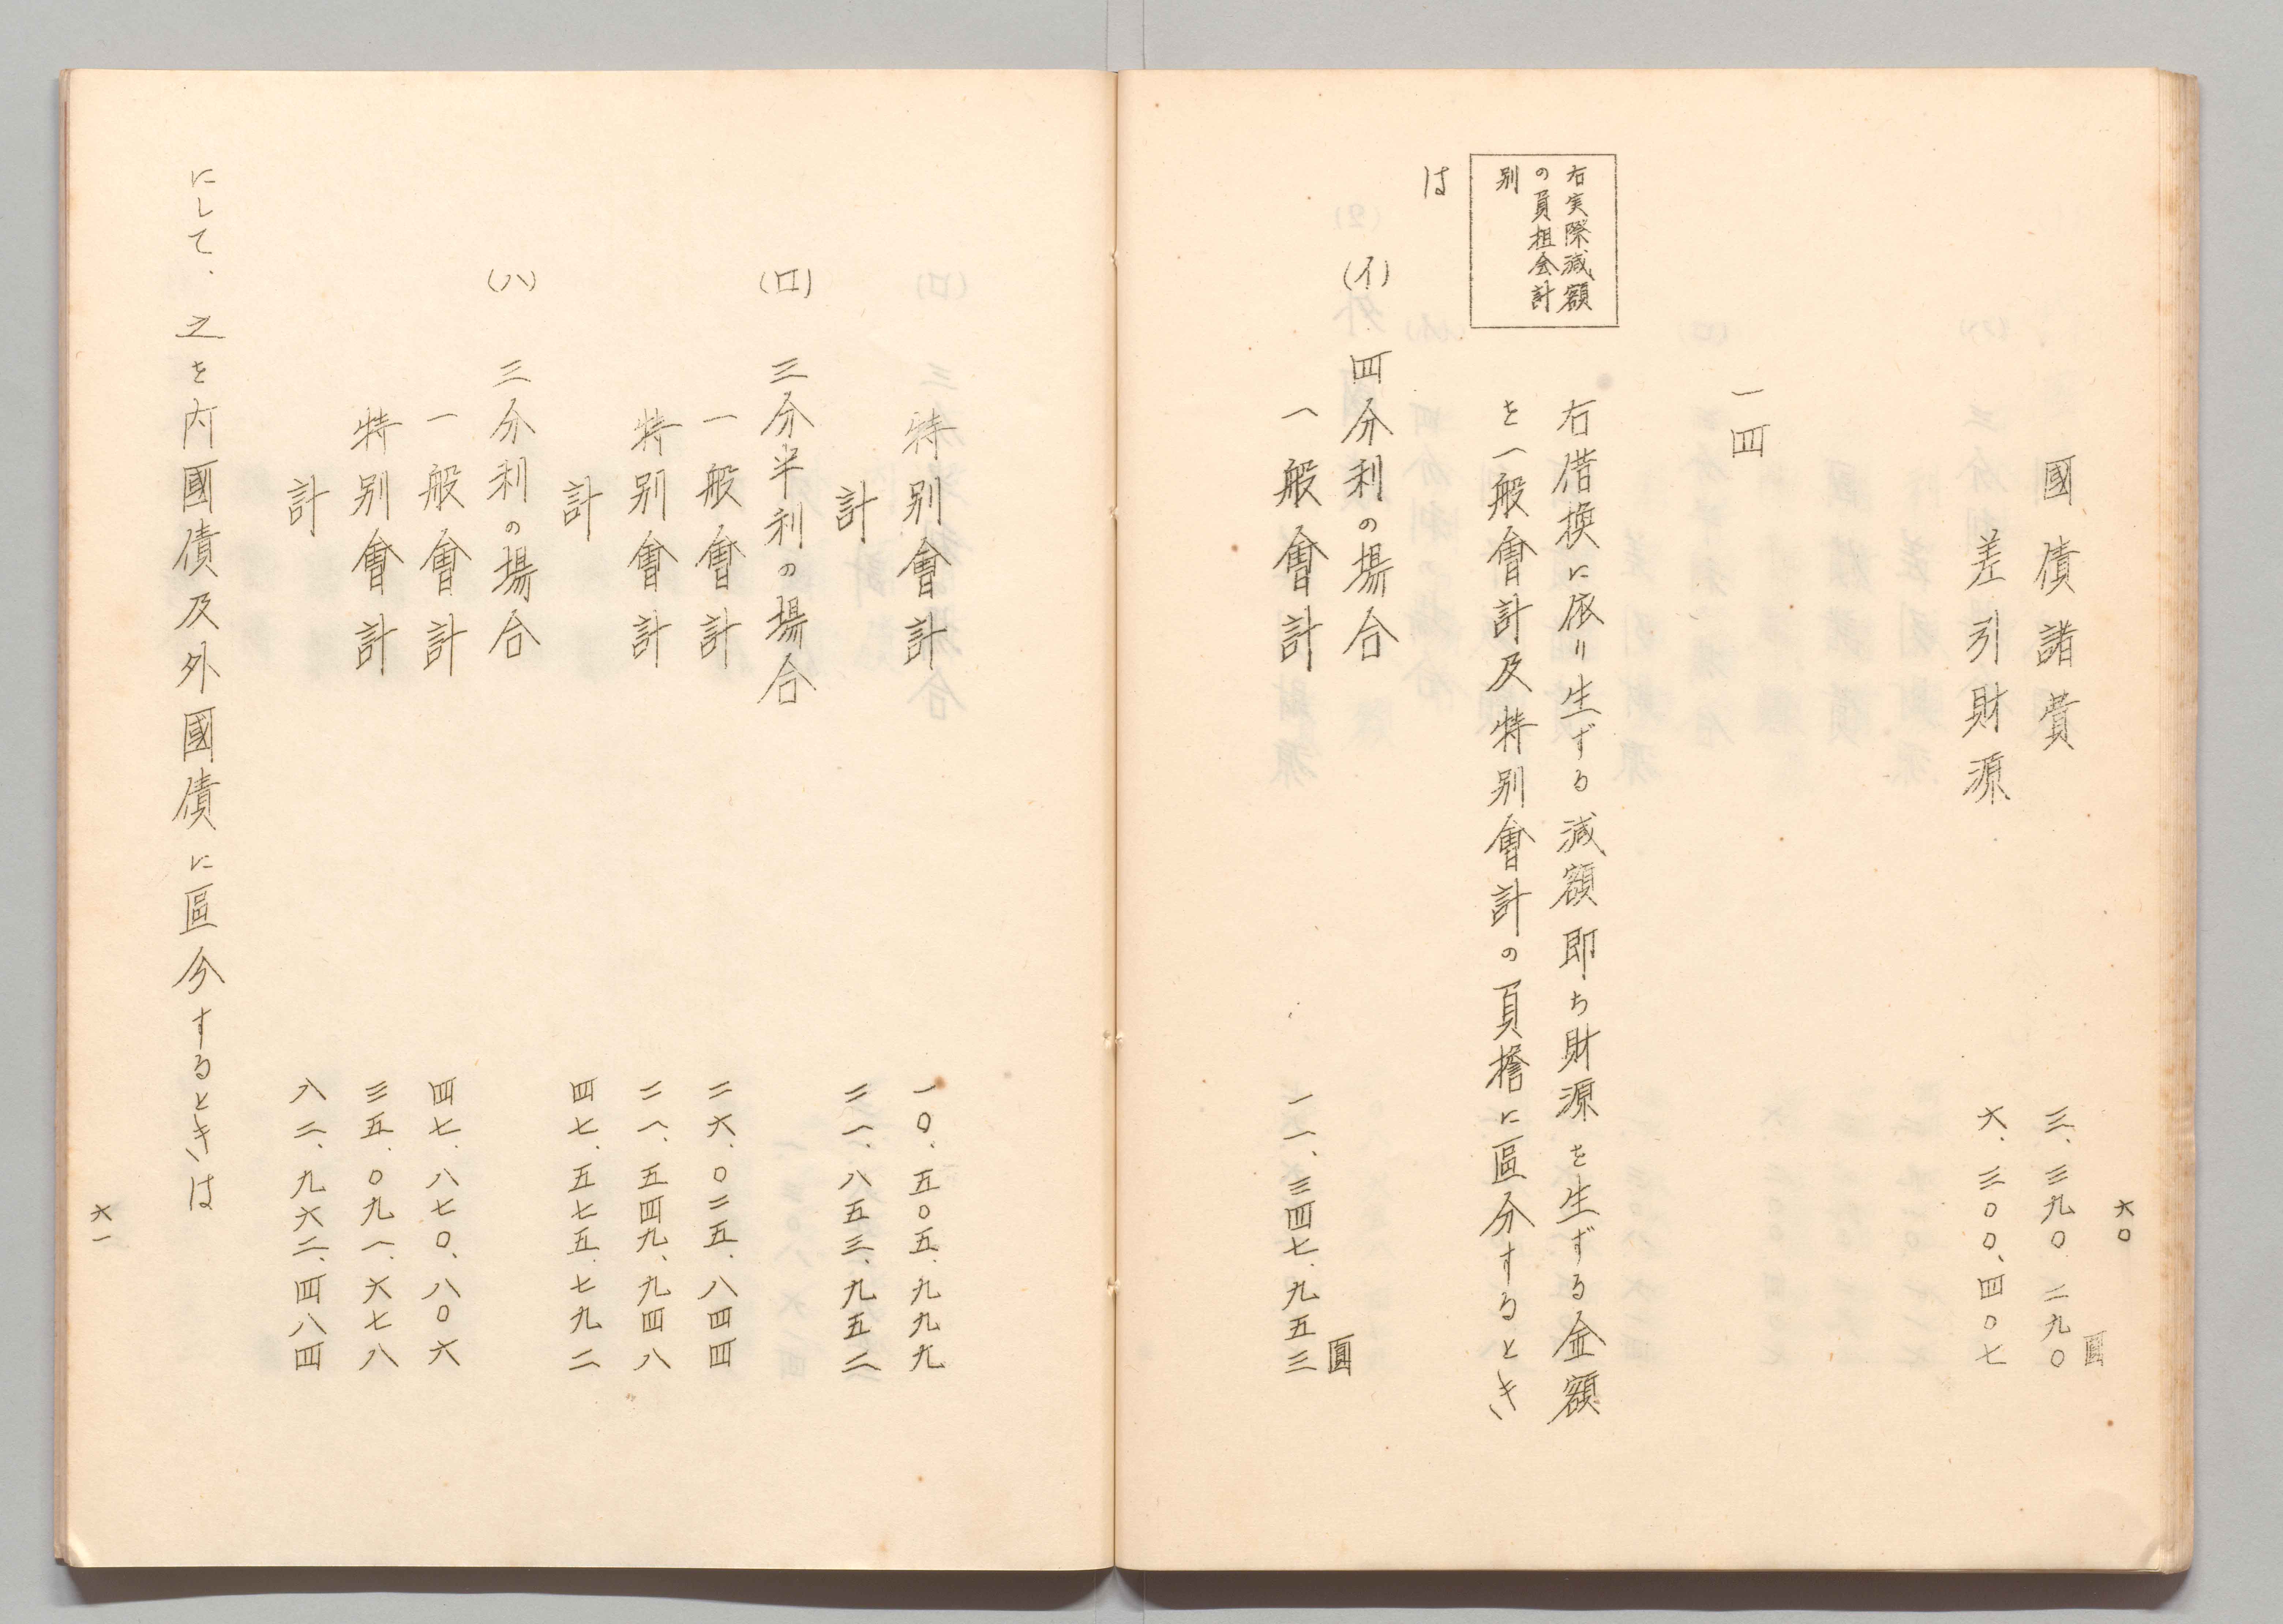 六〇
圓
國債諸費 三、三九〇、二九〇
差引財源 六、三〇〇、四〇七
一四
右実際減額
の負担会計
別
右借換に依り生ずる減額即ち財源を生ずる金額
を一般會計及特別會計の負擔に區分するとき
は
(イ) 四分利の場合
圓
一般會計 一一、三四七、九五三
特別會計 一〇、五〇五、九九九
計 二一、八五三、九五二
(ロ) 三分半利の場合
一般會計 二六、〇二五、八四四
特別會計 二一、五四九、九四八
計 四七、五七五、七九二
(ハ) 三分利の場合
一般會計 四七、八七〇、八〇六
特別會計 三五、〇九一、六七八
計 八二、九六二、四八四
にして、之を内國債及外國債に區分するときは
六一